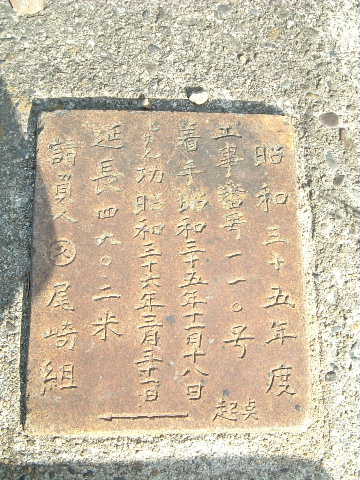 昭和三十五年度
工事番号一一〇号
着手昭和三十五年十一月十八日
しゅん功昭和三十六年三月三十一日
延長四九〇.二米
請負人 尾崎組
起点